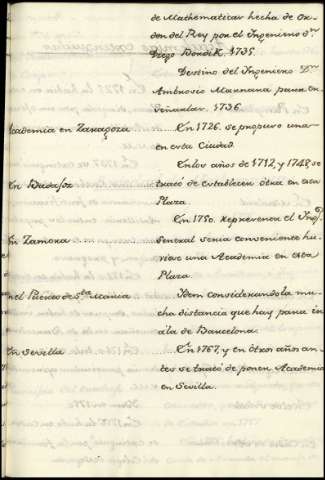 de Mathematicas hecha de or-
den del Rey por el Ingeniero dⁿ
Diego Bordik. 1735.
Destino del Ingeniero Dⁿ
Ambrosio Marmana para en
señarlas. 1736.
Academia en Zaragoza En 1726. se propuso una
en esta Ciudad.
En los años de 1712, y 1742, se
En Badajoz trató de establecer otra en esta
Plaza.
En 1750. represento el Ingº
En Zamora General seria conveniente hu-
viese una Academia en esta
Plaza.
En el Puerto de Sta. Maria Idem considerando la mu-
cha distancia que hay para ir
á la de Barcelona.
En Sevilla En 1767, y en otros años an-
tes se trató de poner Academia
en Sevilla.